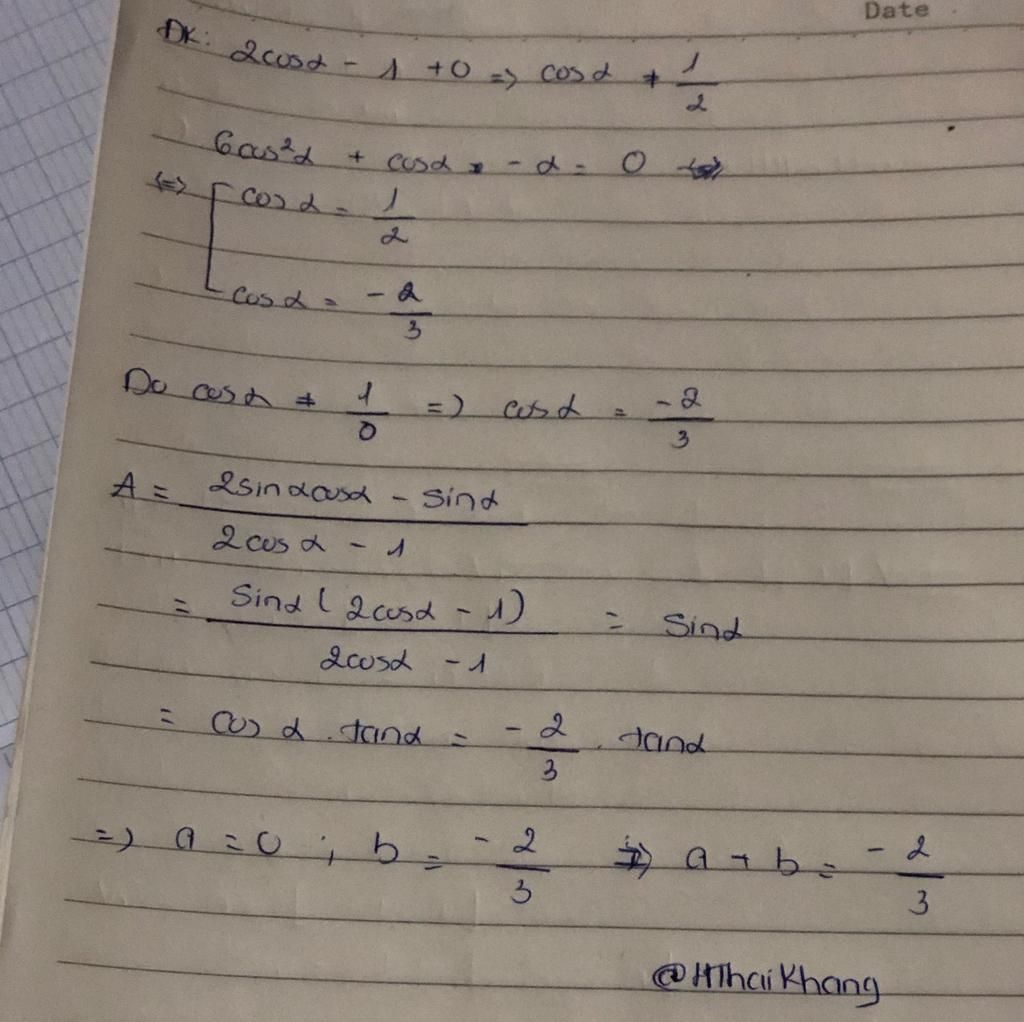 Date
ĐK: 2cosα - 1 ≠ 0 => cosα ≠ 1/2
6cos²α + cosα - 2 = 0
<=> [ cosα = 1/2
cosα = -2/3
Do cosα ≠ 1/0 => cosα = -2/3
A = (2sinαcosα - sinα)/(2cosα - 1)
= (sinα(2cosα - 1))/(2cosα - 1) = sinα
= cosα.tanα = -2/3 . tanα
=> a = 0 ; b = -2/3 => a + b = -2/3
@HThaiKhang